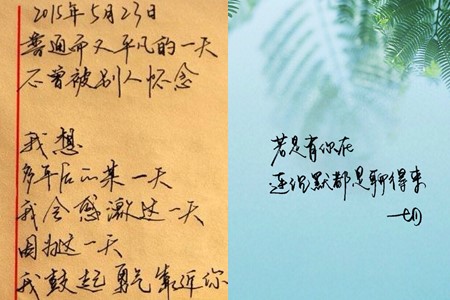 2015年5月23日
普通而又平凡的一天
不曾被别人怀念
我想
多年后的某一天
我会感激这一天
因为这一天
我鼓起勇气靠近你
若是有你在
连沉默都是聊得来
一切